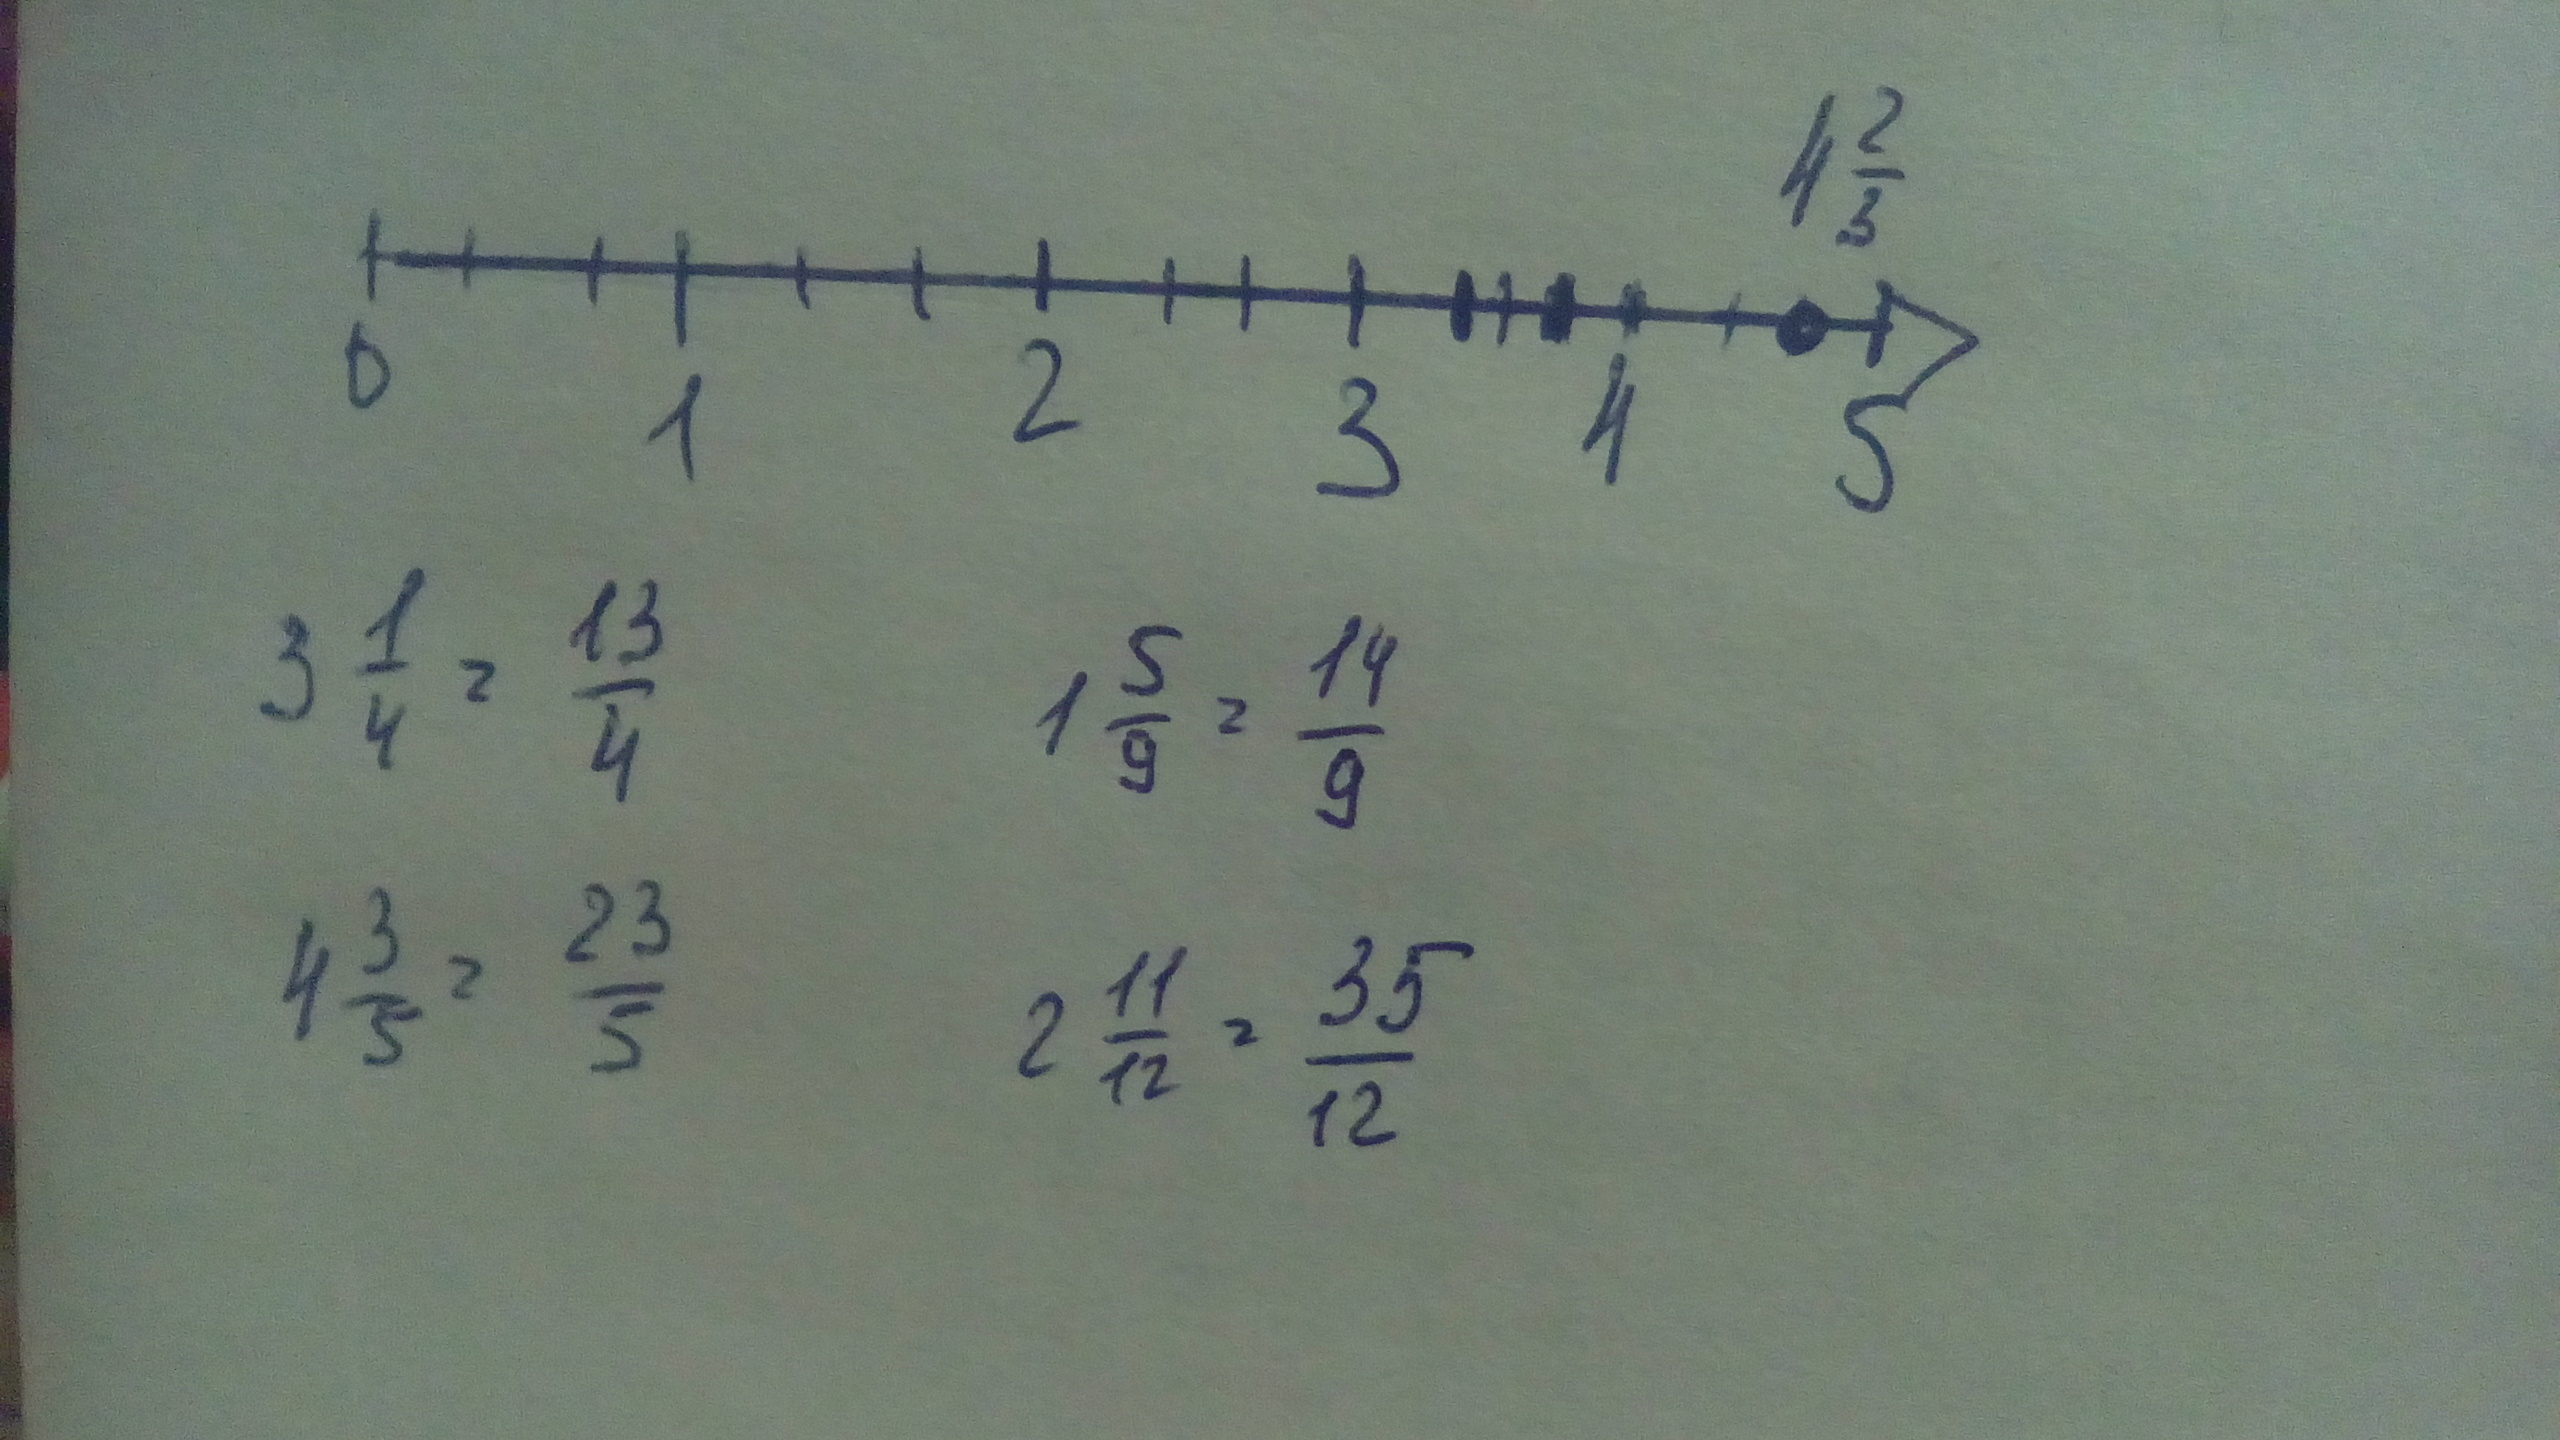 4 2/3
0 1 2 3 4 5
3 1/4 = 13/4 1 5/9 = 14/9
4 3/5 = 23/5 2 11/12 = 35/12